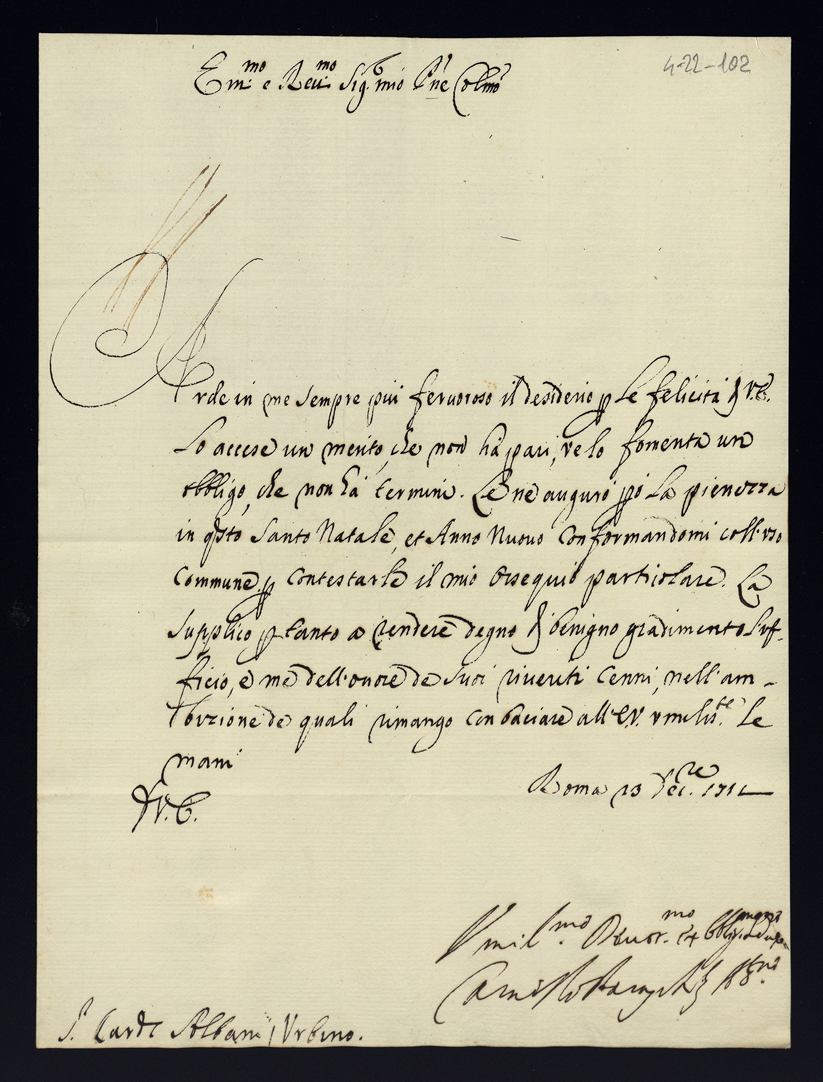 4-22-102
Em.mo e Reu.mo Sig.r mio P.rne Col.mo
Arde in me sempre piú feruoroso il desiderio p le felicitá di V.E.
Lo accese un merito, che non há pari, ve lo fomenta un
obbligo, che non há termini. Le ne auguro poi la pienezza
in q.sto Santo Natale, et Anno Nuovo Conformandomi coll'vso
commune p contestarle il mio ossequio particolare. La
supplico p tanto a rendere degno di benigno gradimento l'vf-
ficio, e me dell'onore de Suoi riueriti Cenni, nell'am-
bizione de quali rimango con baciare all'E.V. vmilis.te le
mani
Di V.E.
Roma 23 Dec.re 171
Vmil.mo Deuot.mo et Obblig.
Camillo
S.r Card.l Albani / Vrbino.